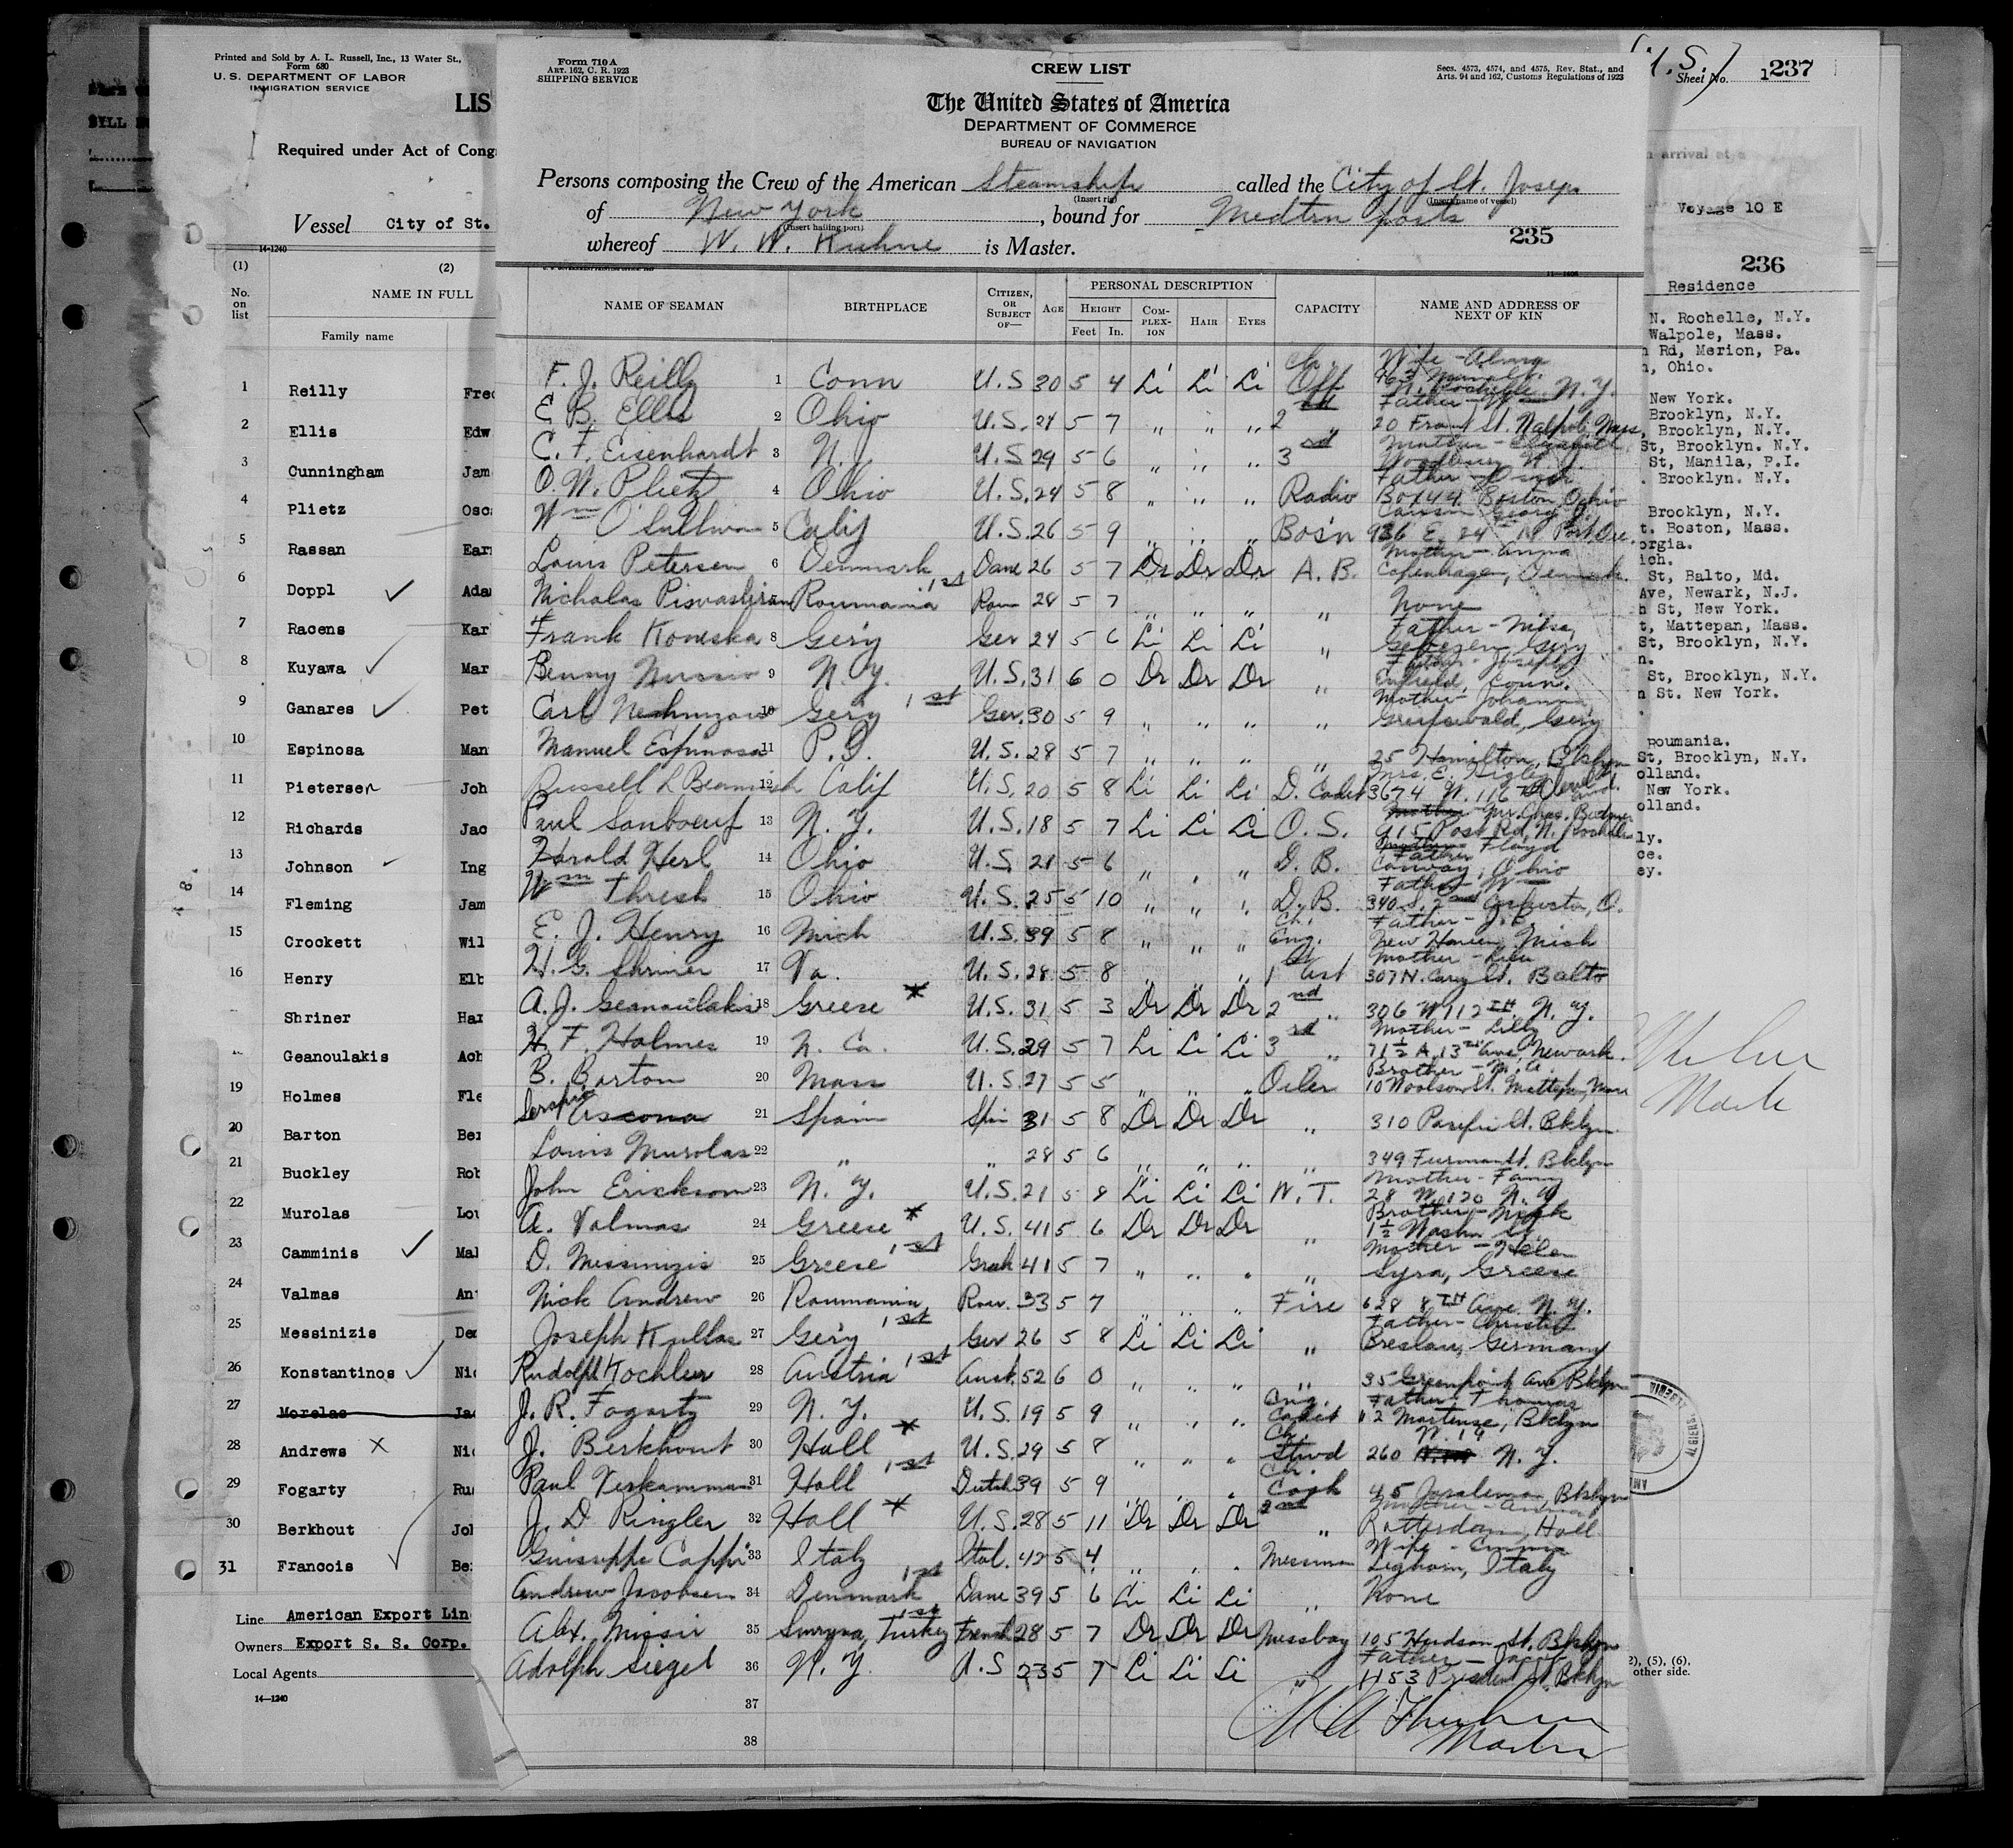 Printed and Sold by A. L. Russell, Inc., 13 Water St.,
Form 680
U. S. DEPARTMENT OF LABOR
IMMIGRATION SERVICE
LIS
Required under Act of Cong
Vessel City of St.
14-1240
(1) (2)
No. on list NAME IN FULL
Family name
1 Reilly Fred
2 Ellis Edw
3 Cunningham Jam
4 Plietz Osc
5 Rassan Ear
6 Doppl Ada
7 Racens Kar
8 Kuyawa Mar
9 Ganares Pet
10 Espinosa Man
11 Pietersen Joh
12 Richards Jac
13 Johnson Ing
14 Fleming Jam
15 Crockett Wil
16 Henry Elb
Shriner Har
Geanoulakis Ach
19 Holmes Fle
20 Barton Ber
21 Buckley Rob
22 Murolas Lou
23 Camminis Mal
24 Valmas An
25 Messinizis De
26 Konstantinos Nic
27 Morelas Ja
28 Andrews Nic
29 Fogarty Ru
30 Berkhout Jo
31 Francois Be
Line American Export Lin
Owners Export S. S. Corp.
Local Agents
14—1240
Form 710 A
ART. 162, C. R. 1923
SHIPPING SERVICE
CREW LIST
Secs. 4573, 4574, and 4575, Rev. Stat., and
Arts. 94 and 162, Customs Regulations of 1923
The United States of America
DEPARTMENT OF COMMERCE
BUREAU OF NAVIGATION
Persons composing the Crew of the American Steamship called the City of St. Joseph
(Insert rig) (Insert name of vessel)
of New York, bound for Medtrn ports
(Insert hailing port)
whereof W. W. Kuhne is Master.
235
11—1406
NAME OF SEAMAN BIRTHPLACE CITIZEN, OR SUBJECT OF— AGE PERSONAL DESCRIPTION CAPACITY NAME AND ADDRESS OF NEXT OF KIN
HEIGHT COMPLEXION HAIR EYES
Feet In.
F. J. Reilly 1 Conn U.S 30 5 4 Li Li Li Ch. Off Wife - Alma N. Rochelle N.Y.
E B. Ellis 2 Ohio U.S. 24 5 7 " " " 2 " Father - Wm 20 Front St. Walpole Mass,
C. F. Eisenhardt 3 N.J. U.S 29 5 6 " " " 3rd Mother - Elizabeth Woodbury N.J.
O. W. Plietz 4 Ohio U.S. 24 5 8 " " " Radio Father - Box 44 Boston, Ohio
Wm O'Sullivan 5 Calif U.S. 26 5 9 " " " Bos'n Cousin George 936 E. 24
Louis Petersen 6 Denmark Dane 26 5 7 Dr Dr Dr A. B. Mother - Anna Copenhagen, Denmark.
Nicholas Roumania 1st Rou 28 5 7 " " " " None
Frank Koneska 8 Ger'y Ger 24 5 6 Li Li Li " Father - Ger'y
Benny 9 N. Y. U.S. 31 6 0 Dr Dr Dr " Father - Joseph Conn.
Carl 10 Ger'y 1st Ger. 30 5 9 " " " " Mother - Johanna Greifswald, Ger'y
Manuel Espinosa 11 P.I. U.S. 28 5 7 " " " " 25 Hamilton, Bklyn
Russell L Beamish 12 Calif U.S. 20 5 8 Li Li Li D. Cadet Mrs. E. Higley 3674 W. 116th Cleveland.
Paul Sonboeuf 13 N.Y. U.S. 18 5 7 Li Li Li O. S. Mr. Chas. 915 Post Rd, N. Rochelle
Harold Herl 14 Ohio U.S. 21 5 6 " " " D. B. Father Floyd Conway, Ohio
Wm Thresh 15 Ohio U.S. 25 5 10 " " " D. B. Father - Wm 340 S. 2nd O.
E. J. Henry 16 Mich U.S. 39 5 8 " " " Ch. Eng. Father - J. New Haven, Mich
H. G. Shriner 17 Va. U.S. 28 5 8 " " " 1st Ast Mother - 307 N. Carey St. Balto
A. J. Geanoulakis 18 Greese * U.S. 31 5 3 Dr Dr Dr 2nd " 306 W 112th N. Y.
H. F. Holmes 19 N. Ca. U.S. 29 5 7 Li Li Li 3rd " Mother - Lilly 71½ A 13th Ave, Newark.
B. Barton 20 Mass U.S. 27 5 5 " " " Oiler Brother - 10 Woolson St. Mattapn, Mass
Ascona 21 Spain Spn 31 5 8 Dr Dr Dr " 310 Pacific St. Bklyn
Louis Murolas 22 " " 28 5 6 " " " " 349 Furman St. Bklyn
John Erickson 23 N. Y. U.S. 21 5 8 Li Li Li W. T. Mother - Fanny 28 W. 120 N.Y.
A. Valmas 24 Greese * U.S. 41 5 6 Dr Dr Dr " Brother - Nick 1½ Washn St.
D. Messinizis 25 Greese 1st Greek 41 5 7 " " " " Mother - Helen Syra, Greese
Nick Andrew 26 Roumania Rou. 33 5 7 " " " Fire 628 8th Ave. N. Y.
Joseph Kullas 27 Ger'y 1st Ger 26 5 8 Li Li Li " Father - Christ Breslau, Germany
Rudolph Kochler 28 Austria 1st Aust. 52 6 0 " " " " 35 Greenpoint Ave Bklyn
J. R. Fogarty 29 N. Y. U.S. 19 5 9 " " " Eng. Cadet Father, Thomas 2 Martense, Bklyn
J. Berkhout 30 Holl * U.S. 29 5 8 " " " Ch. Stwd 260 W. 19 N. Y.
Paul Verkamman 31 Holl 1st Dutch 39 5 9 " " " Ch. Cook 45 Joralemon, Bklyn
J. D Ringler 32 Holl * U.S. 28 5 11 Dr Dr Dr 2nd " Mother - Anna Rotterdam, Holl
Guisseppe Cappi 33 Italy Ital. 42 5 4 " " " Messman Wife - Emma Leghorn, Italy
Andrew Jacobsen 34 Denmark 1st Dane 39 5 6 Li Li Li " None
Alex. Missir 35 Smryna, Turkey 1st French 28 5 7 Dr Dr Dr Messboy 105 Hudson St. Bklyn
Adolph Siegel 36 N. Y. U.S 23 5 7 Li Li Li " Father - Jacob 1153 President St. Bklyn
37
38
Master
(U.S.)
Sheet No. 1 237
arrival at
Voyage 10 E
236
Residence
N. Rochelle, N.Y.
Walpole, Mass.
Rd, Merion, Pa.
, Ohio.
New York.
Brooklyn, N.Y.
Brooklyn, N.Y.
St, Brooklyn. N.Y.
St, Manila, P.I.
. Brooklyn. N.Y.
Brooklyn, N.Y.
t. Boston, Mass.
orgia.
ich.
St, Balto, Md.
Ave, Newark, N.J.
h St, New York.
t, Mattepan, Mass.
St, Brooklyn, N.Y.
n.
St, Brooklyn, N.Y.
n St. New York.
Roumania.
St, Brooklyn, N.Y.
olland.
New York.
olland.
ly.
ce.
ey.
Master
ALGIERS
2), (5), (6).
other side.